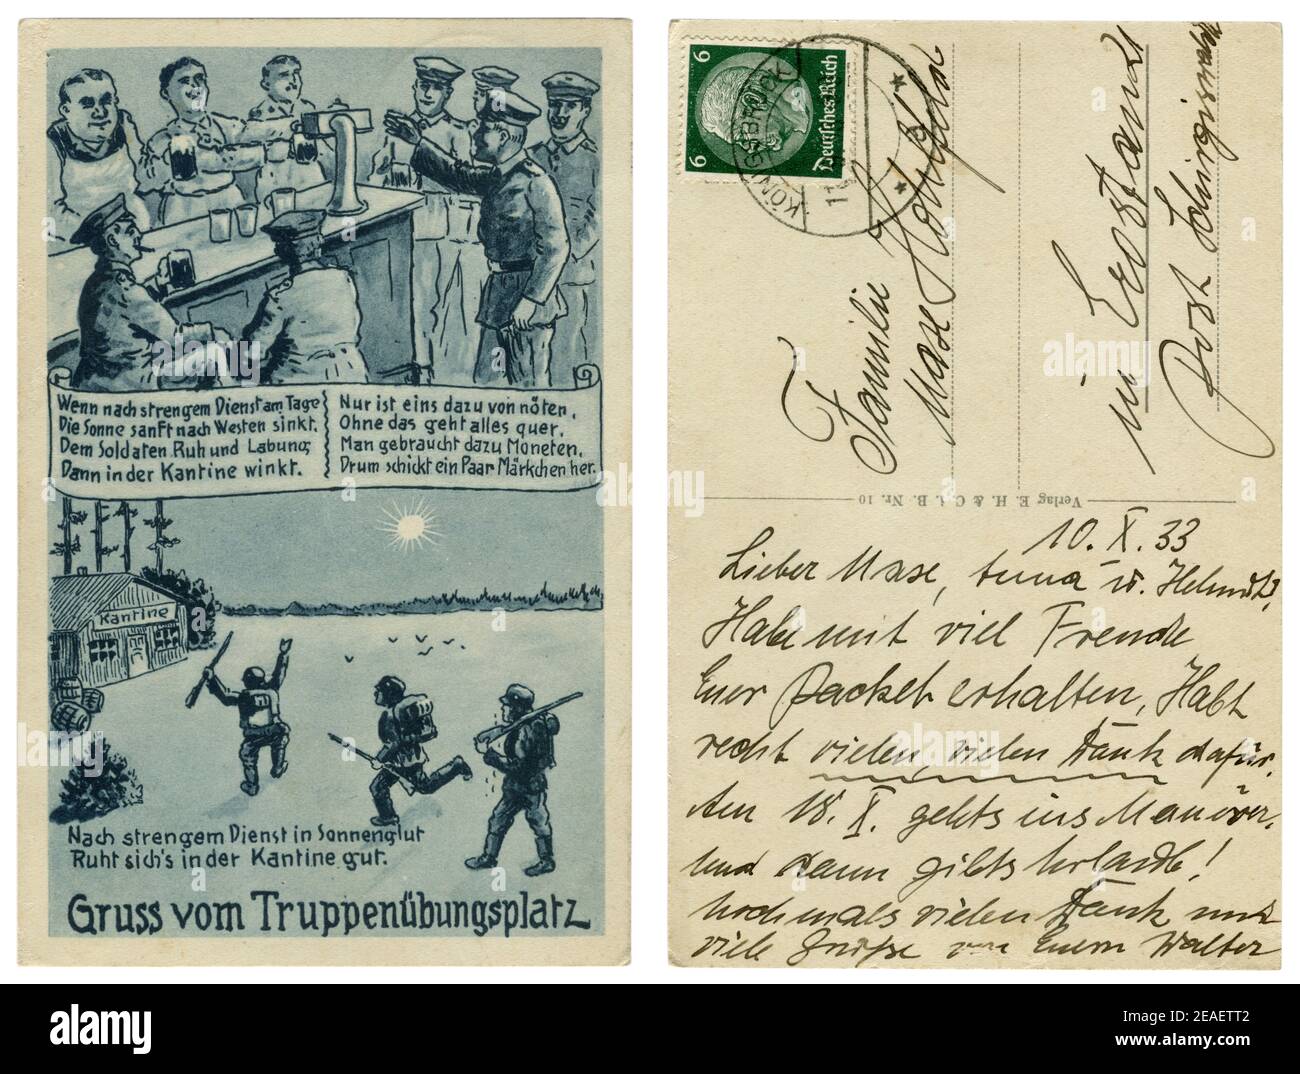 Wenn nach strengem Dienst am Tage
Die Sonne sanft nach Westen sinkt.
Dem Soldaten Ruh und Labung
Dann in der Kantine winkt.
Nur ist eins dazu von nöten,
Ohne das geht alles quer.
Man gebraucht dazu Moneten,
Drum schickt ein Paar Märkchen her.
Kantine
Nach strengem Dienst in Sonnenglut
Ruht sich's in der Kantine gut.
Gruss vom Truppenübungsplatz
6
Deutsches Reich
6
KÖNIGSBRÜCK
Familie
Mase
in
Post
Verlag E. H. & C. i. B. Nr. 10
10. X. 33
Lieber Mase, u. Helmut,
Habe mit viel Freude
Euer Packet erhalten, Habt
recht vielen vielen Dank dafür.
Am 18. X. gehts ins Manöver,
und dann gibts Urlaub!
Nochmals vielen Dank und
viele Grüße von Euerm Walter
alamy
Image ID: 2EAETT2
www.alamy.com